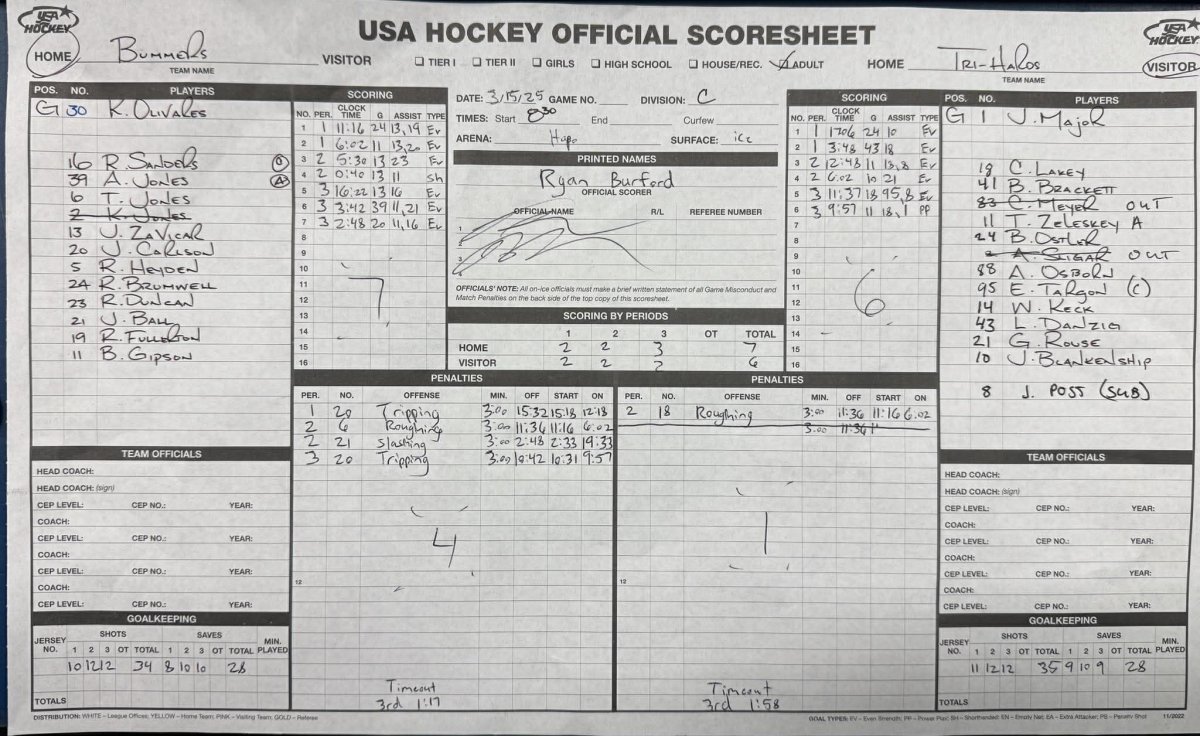 USA HOCKEY
USA HOCKEY OFFICIAL SCORESHEET
USA HOCKEY
HOME Bummers VISITOR ☐ TIER I ☐ TIER II ☐ GIRLS ☐ HIGH SCHOOL ☐ HOUSE/REC. ☑ ADULT HOME Tri-Hards VISITOR
TEAM NAME TEAM NAME
POS. NO. PLAYERS
G 30 K. Olivares
16 R. Sanders
39 A. Jones (A)
6 T. Jones
2 K. Jones
13 J. Zavicar
20 J. Carlson
5 R. Heyden
24 R. Brumwell
23 R. Duncan
21 J. Ball
19 R. Fullerton
11 B. Gipson
SCORING
NO. PER. CLOCK TIME G ASSIST TYPE
1 1 11:16 24 13,19 Ev
2 1 6:02 11 13,20 Ev
3 2 5:30 13 23 Ev
4 2 0:40 13 11 Sh
5 3 16:22 13 16 Ev
6 3 3:42 39 11,21 Ev
7 3 2:48 20 11,16 Ev
8
9
10
11
12
13
14
15
16
7
DATE: 3/15/25 GAME NO. DIVISION: C
TIMES: Start 8:30 End Curfew
ARENA: Hapo SURFACE: ice
PRINTED NAMES
Ryan Burford
OFFICIAL SCORER
OFFICIAL NAME R/L REFEREE NUMBER
1
2
3
OFFICIALS' NOTE: All on-ice officials must make a brief written statement of all Game Misconduct and
Match Penalties on the back side of the top copy of this scoresheet.
SCORING BY PERIODS
1 2 3 OT TOTAL
HOME 2 2 3 7
VISITOR 2 2 2 6
SCORING
NO. PER. CLOCK TIME G ASSIST TYPE
1 1 1706 24 10 Ev
2 1 3:48 43 18 Ev
3 2 12:48 11 18,8 Ev
4 2 6:02 10 21 Ev
5 3 11:37 18 95,8 Ev
6 3 9:57 11 18,1 PP
7
8
9
10
11
12
13
14
15
16
6
POS. NO. PLAYERS
G 1 J. Major
18 C. Lakey
41 B. Brackett
83 C. Meyer OUT
11 T. Zeleskey A
24 B. Ostler
2 A. Sligar OUT
88 A. Osborn
95 E. Targon (C)
14 W. Keck
43 L. Danzig
21 G. Rouse
10 J. Blankenship
8 J. Poss (SUB)
PENALTIES
PER. NO. OFFENSE MIN. OFF START ON
1 20 Tripping 3:00 15:32 15:18 12:18
2 6 Roughing 3:00 11:36 11:16 6:02
2 21 slashing 3:00 2:48 2:33 19:33
3 20 Tripping 3:00 10:42 10:31 9:57
4
12
Timeout
3rd 1:17
PENALTIES
PER. NO. OFFENSE MIN. OFF START ON
2 18 Roughing 3:00 11:36 11:16 6:02
3:00 11:36
1
12
Timeout
3rd 1:58
TEAM OFFICIALS
HEAD COACH:
HEAD COACH: (sign)
CEP LEVEL: CEP NO.: YEAR:
COACH:
CEP LEVEL: CEP NO.: YEAR:
COACH:
CEP LEVEL: CEP NO.: YEAR:
COACH:
CEP LEVEL: CEP NO.: YEAR:
GOALKEEPING
JERSEY NO. SHOTS SAVES MIN. PLAYED
1 2 3 OT TOTAL 1 2 3 OT TOTAL
10 12 12 34 8 10 10 28
TOTALS
TEAM OFFICIALS
HEAD COACH:
HEAD COACH: (sign)
CEP LEVEL: CEP NO.: YEAR:
COACH:
CEP LEVEL: CEP NO.: YEAR:
COACH:
CEP LEVEL: CEP NO.: YEAR:
COACH:
CEP LEVEL: CEP NO.: YEAR:
GOALKEEPING
JERSEY NO. SHOTS SAVES MIN. PLAYED
1 2 3 OT TOTAL 1 2 3 OT TOTAL
11 12 12 35 9 10 9 28
TOTALS
DISTRIBUTION: WHITE – League Offices; YELLOW – Home Team; PINK – Visiting Team; GOLD – Referee
GOAL TYPES: EV – Even Strength; PP – Power Play; SH – Shorthanded; EN – Empty Net; EA – Extra Attacker; PS – Penalty Shot 11/2022